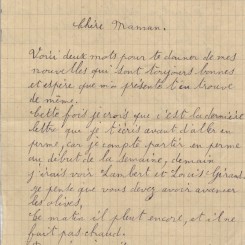 Chère Maman.
Voici deux mots pour te donner de mes
nouvelles qui sont toujours bonnes
et espère que ma présente t'en trouve
de même.
Cette fois je crois que c'est la dernière
lettre que je t'écris avant d'aller en
perme, car je compte partir en perme
au début de la semaine, demain
j'irais voir Lambert et Louis Giraud.
je pense que vous devez avoir avancer
les olives,
Ce matin il pleut encore, et il ne
fait pas chaud.